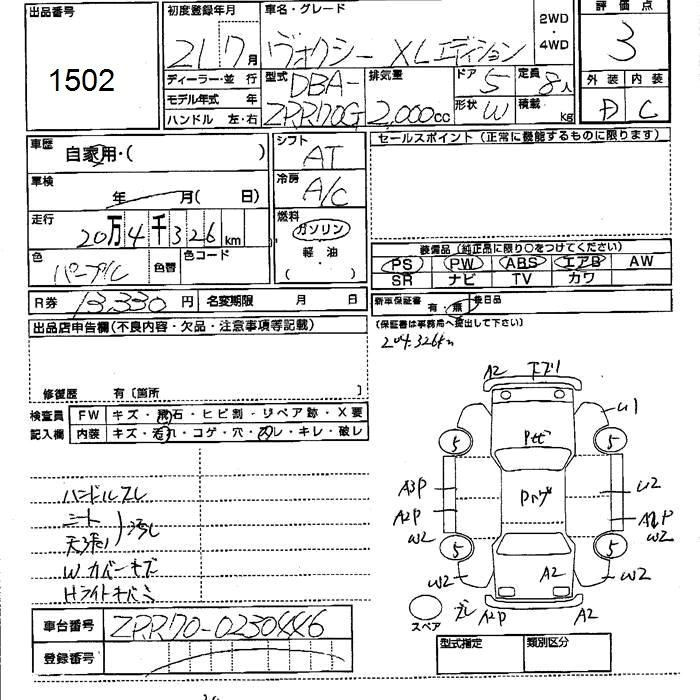 出品番号
1502
初度登録年月
21 7月
車名・グレード
ヴォクシー XLエディション
2WD
・
4WD
評価点
3
ディーラー・並 行
モデル年式 年
ハンドル 左・右
型式
DBA-
ZRR70G
排気量
2,000cc
ドア 5
定員 8人
形状 W
積載 kg
外装 内装
D C
車歴
自家用・( )
シフト
AT
セールスポイント (正常に機能するものに限ります)
車検
年 月( 日)
冷房
A/C
走行
20万4千326km
燃料
ガソリン
軽・油
( )
色
パープル
色替
色コード
装備品 (純正品に限り○をつけてください)
PS PW ABS エアB AW
SR ナビ TV カワ
R券 13,330円
名変期限 月 日
新車保証書 有・無
(保証書は事務局へ提出して下さい)
204,326km
出品店申告欄 (不良内容・欠品・注意事項等記載)
修復歴 有〔箇所 〕
検査員
記入欄
FW キズ・飛石・ヒビ割・リペア跡・X要
内装 キズ・汚れ・コゲ・穴・スレ・キレ・破レ
ハンドルスレ
シート
天張り
汚し
Wカバーキズ
Hライトキバミ
A2 下ズリ
U1
5 5
Pセビ
A3P
A2P
Pハゲ
U2
W2
W2
5 5
W2 A2 W2
A2P A2
スペア
車台番号 ZRR70-0230446
登録番号
型式指定
類別区分